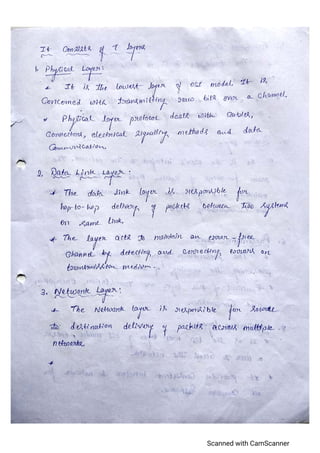 It Consists of 7 layers
1. Physical Layer:
It is the lowest layer of OSI model. It is
Concerned with transmitting raw bits over a channel.
Physical layer protocol dealt with Cables,
Connectors, electrical signalling methods and data
Communication.
2. Data Link Layer:
The data link layer is responsible for
hop-to-hop delivery of packets between two systems
on same link.
The layer acts to maintain an error-free
channel by detecting and correcting errors on
transmission medium.
3. Network Layer:
The Network layer is responsible for source
to destination delivery of packets across multiple
networks
Scanned with CamScanner